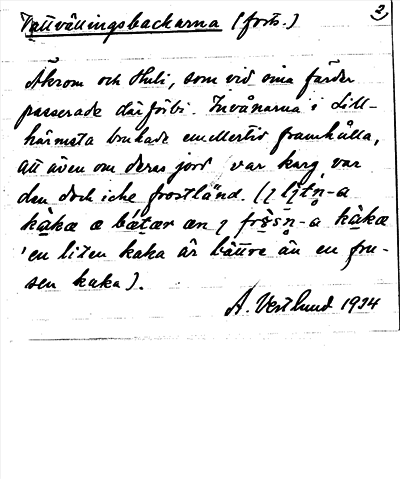 Tattvällingsbackarna (forts.) 2)
Åkrom och Huli, som vid sina färder
passerade därförbi. Invånarna i Lill-
härmsta brukade emellertid framhålla,
att även om deras jord var karg var
den dock icke frostländ. (
kàkæ æ bǽtær æn kàkæ
'en liten kaka är bättre än en fru-
sen kaka).
A. Vestlund 1934